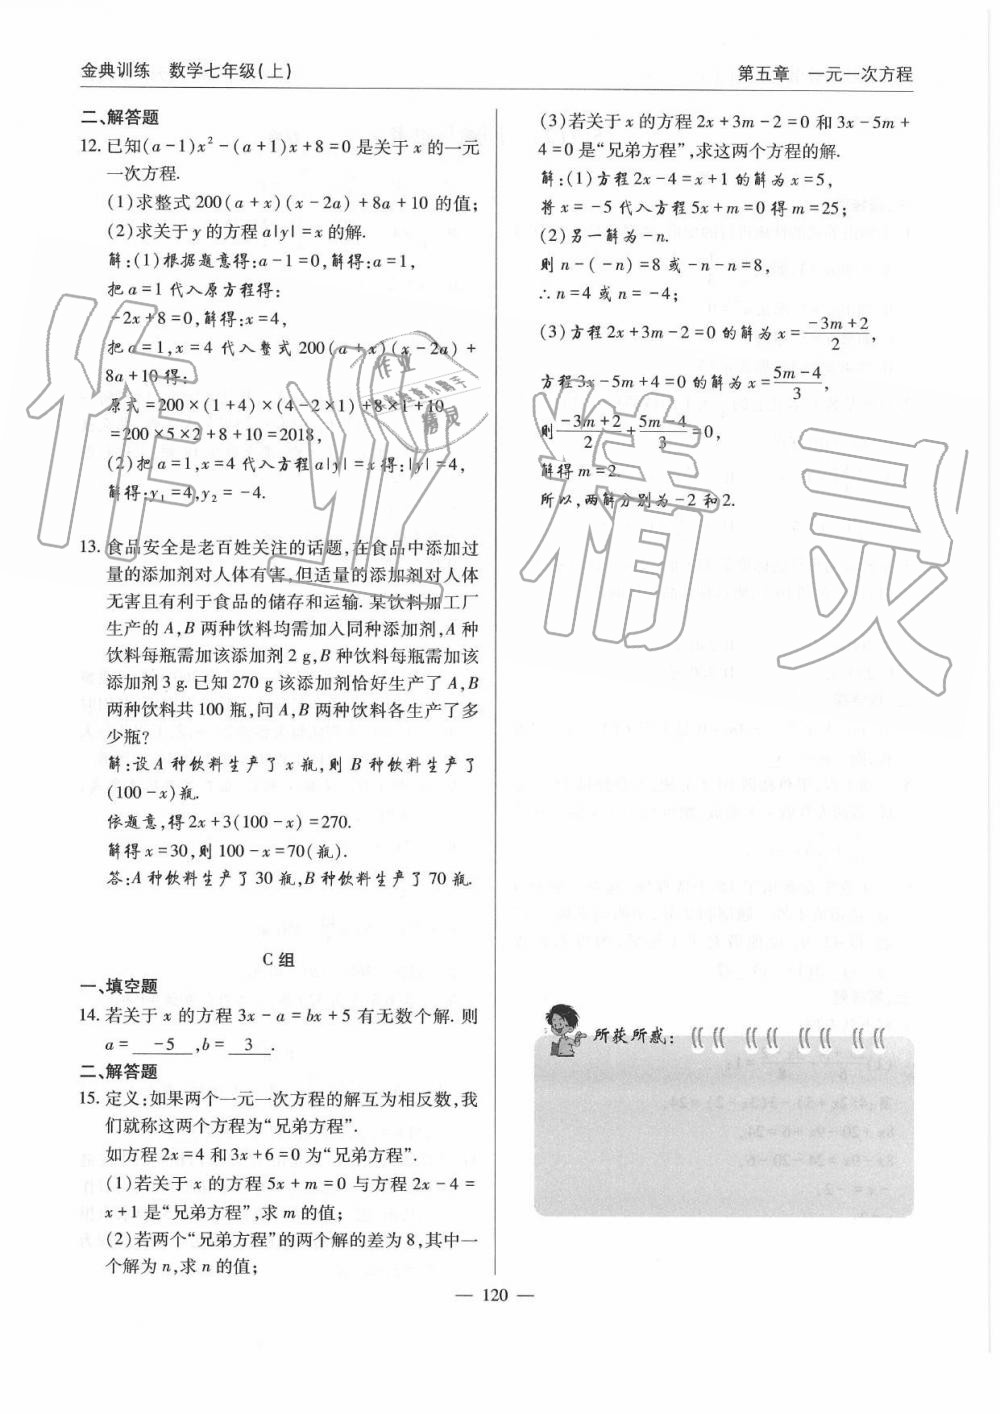 金典训练　数学七年级(上)
第五章　一元一次方程
二、解答题
12. 已知(a-1)x²-(a+1)x+8=0 是关于 x 的一元
一次方程.
(1)求整式 200(a+x)(x-2a)+8a+10 的值;
(2)求关于 y 的方程 a|y|=x 的解.
解:(1)根据题意得:a-1=0,解得:a=1,
把 a=1 代入原方程得:
-2x+8=0,解得:x=4,
把 a=1,x=4 代入整式 200(a+x)(x-2a)+
8a+10 得:
原式=200×(1+4)×(4-2×1)+8×1+10
=200×5×2+8+10=2018,
(2)把 a=1,x=4 代入方程 a|y|=x 得:|y|=4,
解得:y₁=4,y₂=-4.
13. 食品安全是老百姓关注的话题,在食品中添加过
量的添加剂对人体有害,但适量的添加剂对人体
无害且有利于食品的储存和运输. 某饮料加工厂
生产的 A,B 两种饮料均需加入同种添加剂,A 种
饮料每瓶需加该添加剂 2 g,B 种饮料每瓶需加该
添加剂 3 g. 已知 270 g 该添加剂恰好生产了 A,B
两种饮料共 100 瓶,问 A,B 两种饮料各生产了多
少瓶?
解:设 A 种饮料生产了 x 瓶,则 B 种饮料生产了
(100-x)瓶.
依题意,得 2x+3(100-x)=270.
解得 x=30,则 100-x=70(瓶).
答:A 种饮料生产了 30 瓶,B 种饮料生产了 70 瓶.
C 组
一、填空题
14. 若关于 x 的方程 3x-a=bx+5 有无数个解. 则
a= -5 ,b= 3 .
二、解答题
15. 定义:如果两个一元一次方程的解互为相反数,我
们就称这两个方程为“兄弟方程”.
如方程 2x=4 和 3x+6=0 为“兄弟方程”.
(1)若关于 x 的方程 5x+m=0 与方程 2x-4=
x+1 是“兄弟方程”,求 m 的值;
(2)若两个“兄弟方程”的两个解的差为 8,其中一
个解为 n,求 n 的值;
(3)若关于 x 的方程 2x+3m-2=0 和 3x-5m+
4=0 是“兄弟方程”,求这两个方程的解.
解:(1)方程 2x-4=x+1 的解为 x=5,
将 x=-5 代入方程 5x+m=0 得 m=25;
(2)另一解为-n.
则 n-(-n)=8 或-n-n=8,
∴n=4 或 n=-4;
(3)方程 2x+3m-2=0 的解为 x=(-3m+2)/2,
方程 3x-5m+4=0 的解为 x=(5m-4)/3,
则(-3m+2)/2+(5m-4)/3=0,
解得 m=2.
所以,两解分别为-2 和 2.
所获所惑:
作业精灵
— 120 —